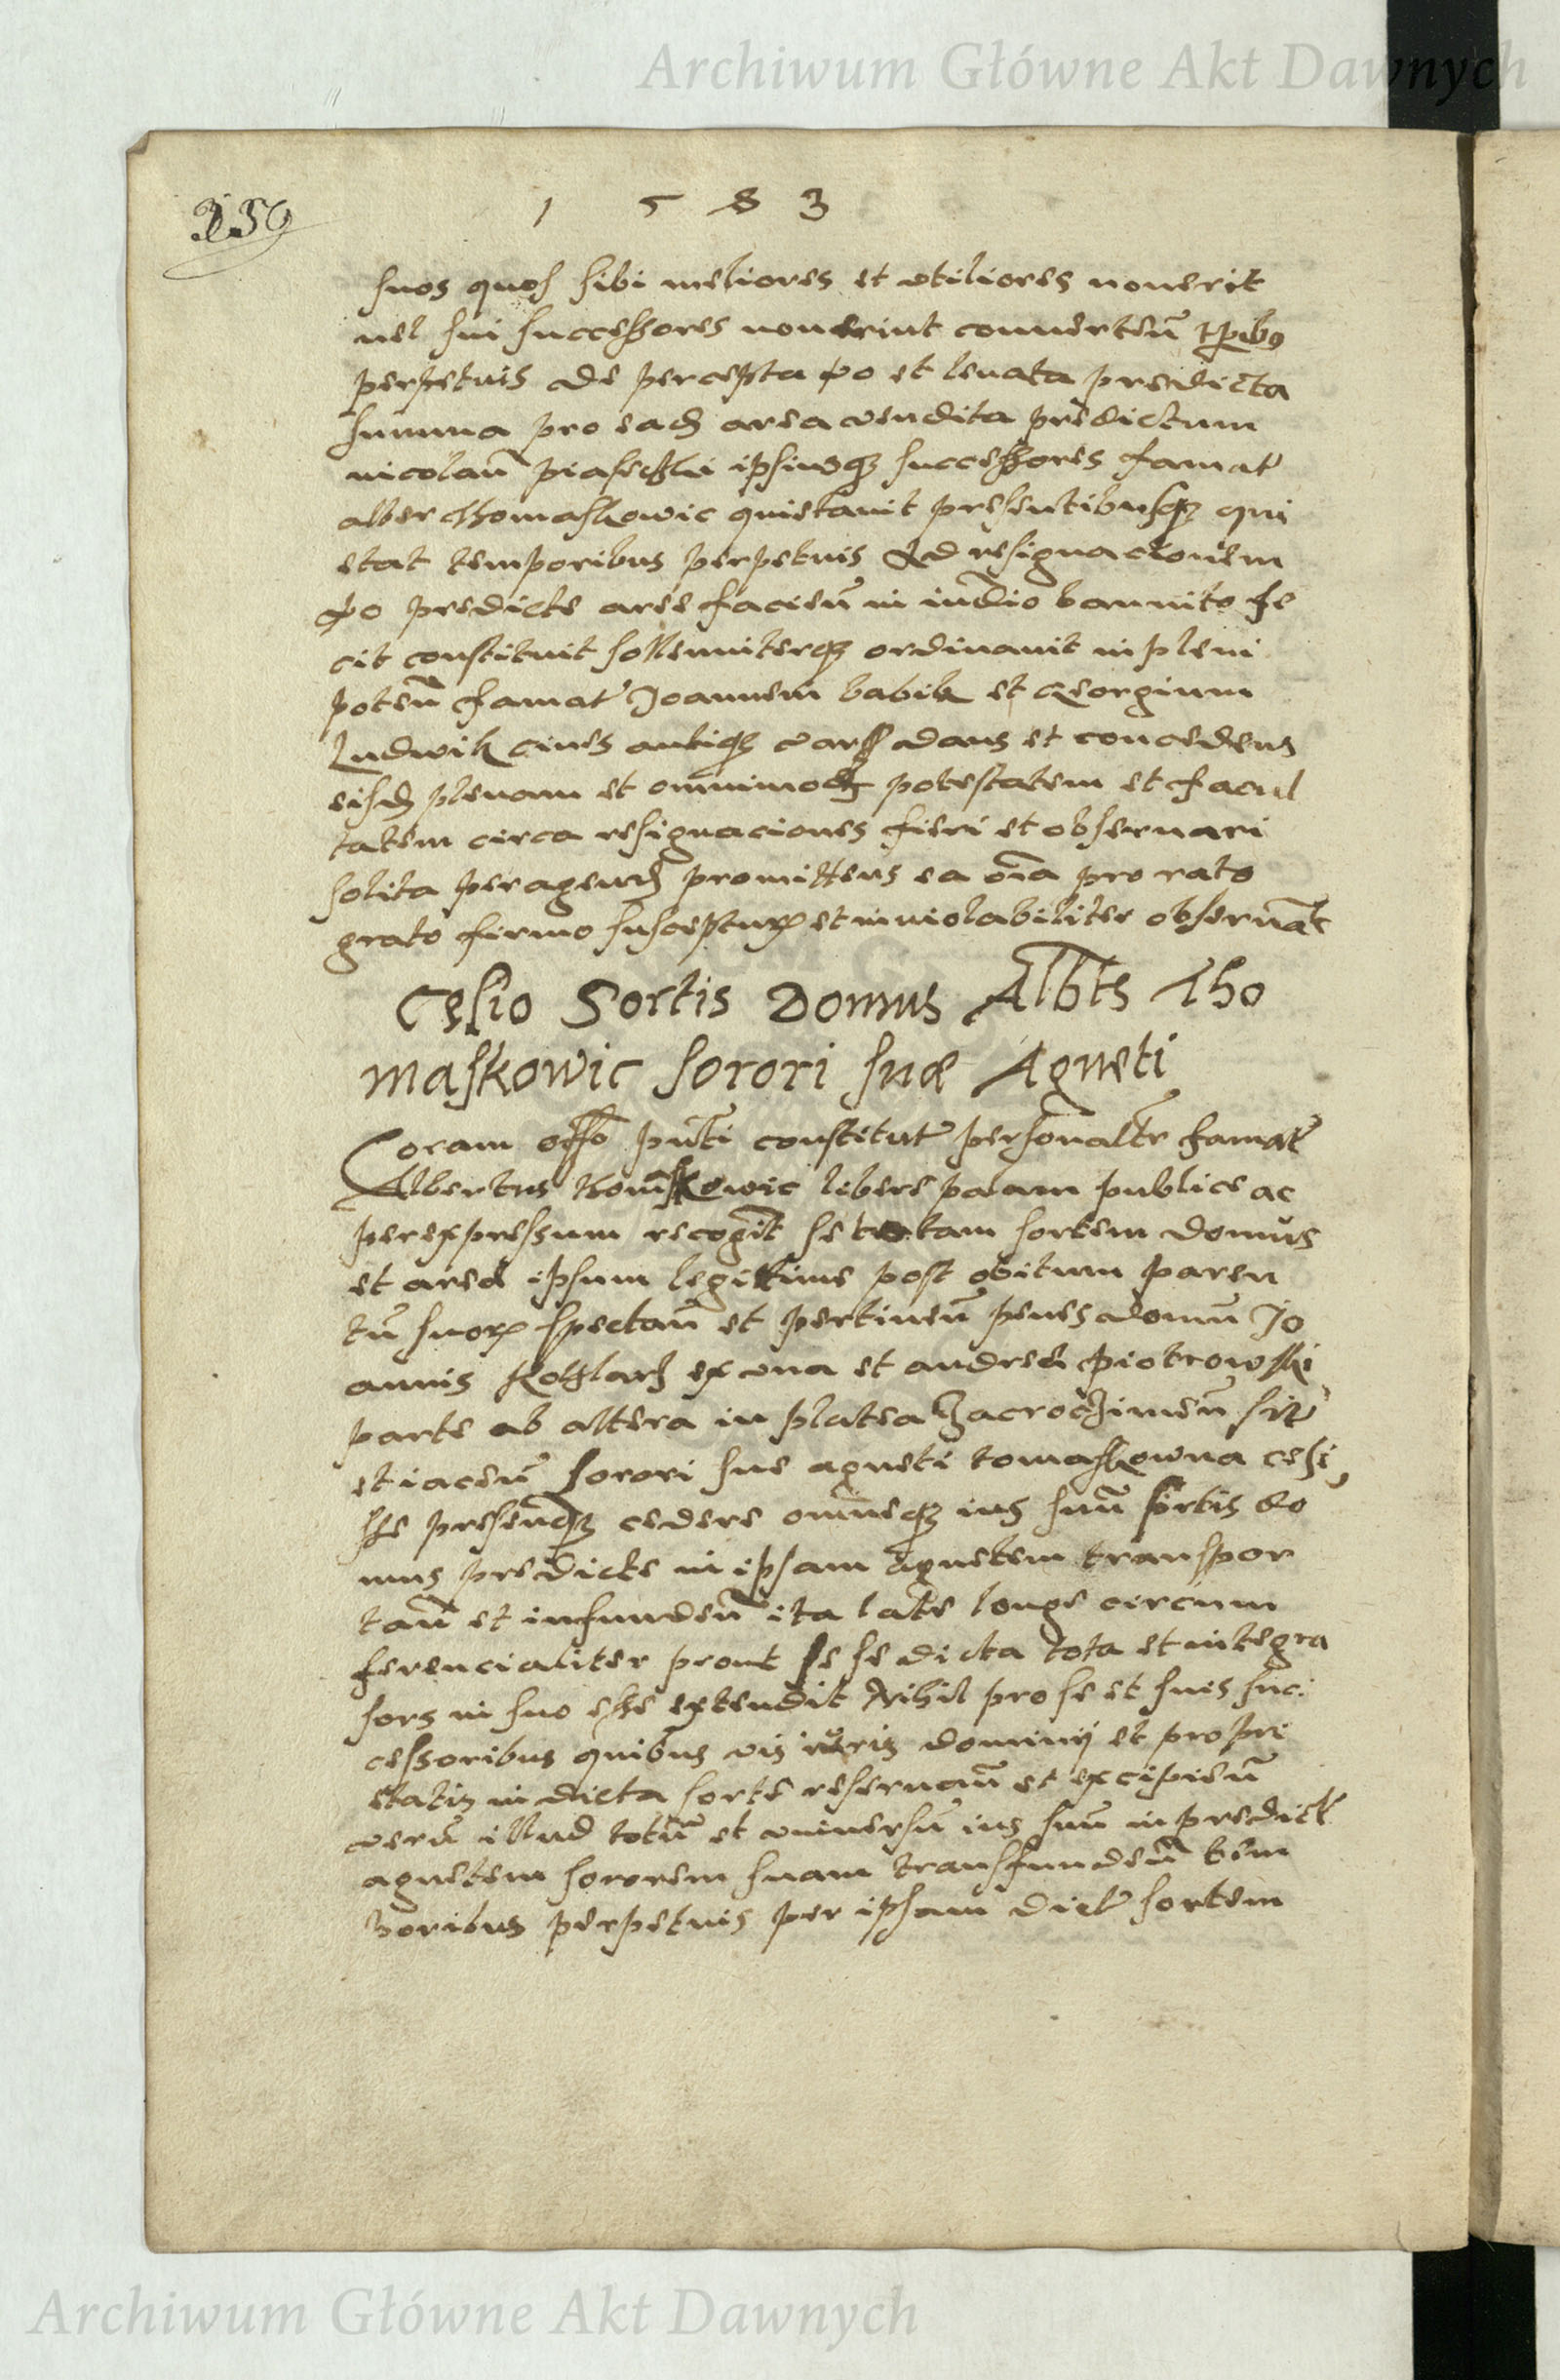 Archiwum Główne Akt Dawnych
1 5 8 3
suos quos sibi meliores et vtiliores nouerit
uel sui successores nouerint conuerten̄ tp̄ibꝯ
perpetuis de percepta vo et leuata predicta
summa pro eadꝫ area vendita predictum
nicolaū piaseczki ipsiusqꝫ successores famat
alber Thomaskowic quietauit presentibusqꝫ qui
etat temporibus perpetuis Ad resignacionem
vo predicte aree facien̄ in iudīo bannito fe
cit constituit sollenniterqꝫ ordinauit in pleni
poten̄ famat Joannem babik et Georgium
Ludwik ciues antiqꝫ vars dans et concedens
eisdꝫ plenam et omnimodꝫ potestatem et facul
tatem circa resignaciones fieri et obseruari
solita peragendꝫ promittens ea oīa pro rato
grato firmo suscepturꝫ et inuiolabiliter obseruāt
Cęsio Sortis Domus Alb̄ts Tho
maskowic sorori suæ Agneti
Coram offō pn̄ti constitut personalr̄ famat
Albertus Thomskowic libere palam publice ac
per expressum recogīt se totam sortem domus
et areæ ipsum legitime post obitum paren
tū suorꝫ spectan̄ et pertinen̄ penes domū Jo
annis Kotlarꝫ ex vna et andreæ piotrowski
parte ab altera in platea Zacroczimen̄ sit
et iacen̄ sorori sue agneti tomaskowna cessi
sse presenqꝫ cedere omneqꝫ ius suū sortis do
mus predicte in ipsam agnetem transpor
tan̄ et infunden̄ ita late longe circum
ferencialiter prout se se dicta tota et integra
sors in suo esse extendit Nihil pro se et suis suc
cessoribus quibus vis iuris dominij et propri
etatis in dicta sorte reseruan̄ et excipien̄
verū illud totū et vniuersū ius suū in predict
agnetem sororem suam transfunden̄ tem
poribus perpetuis per ipsam dict sortem
Archiwum Główne Akt Dawnych